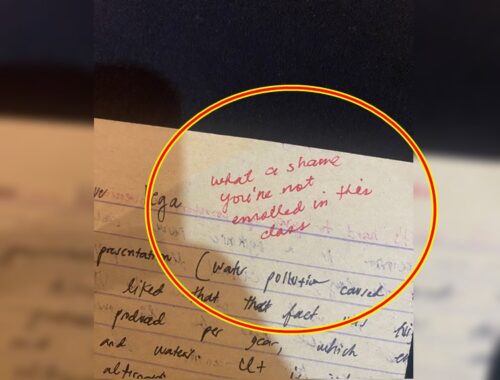 what a shame
you're not
enrolled in this
class
ega
presentation (water pollution caused
liked that that fact
produced per year, which
and water. It